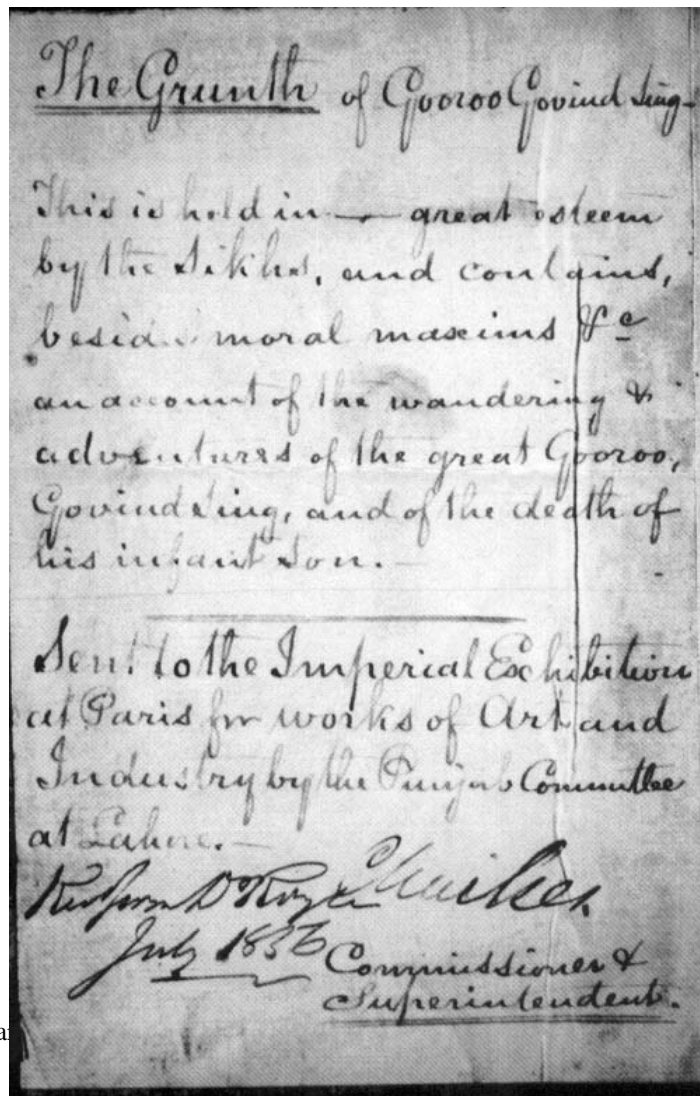 The Grunth of Gooroo Govind Sing-
This is held in — great esteem
by the Sikhs, and contains,
besides moral maxims &c
an account of the wandering &
adventures of the great Gooroo,
Govind Sing, and of the death of
his infant Son.—
Sent to the Imperial Exhibition
at Paris for works of Art and
Industry by the Punjab Committee
at Lahore.—
July 1856
Commissioner &
Superintendent.